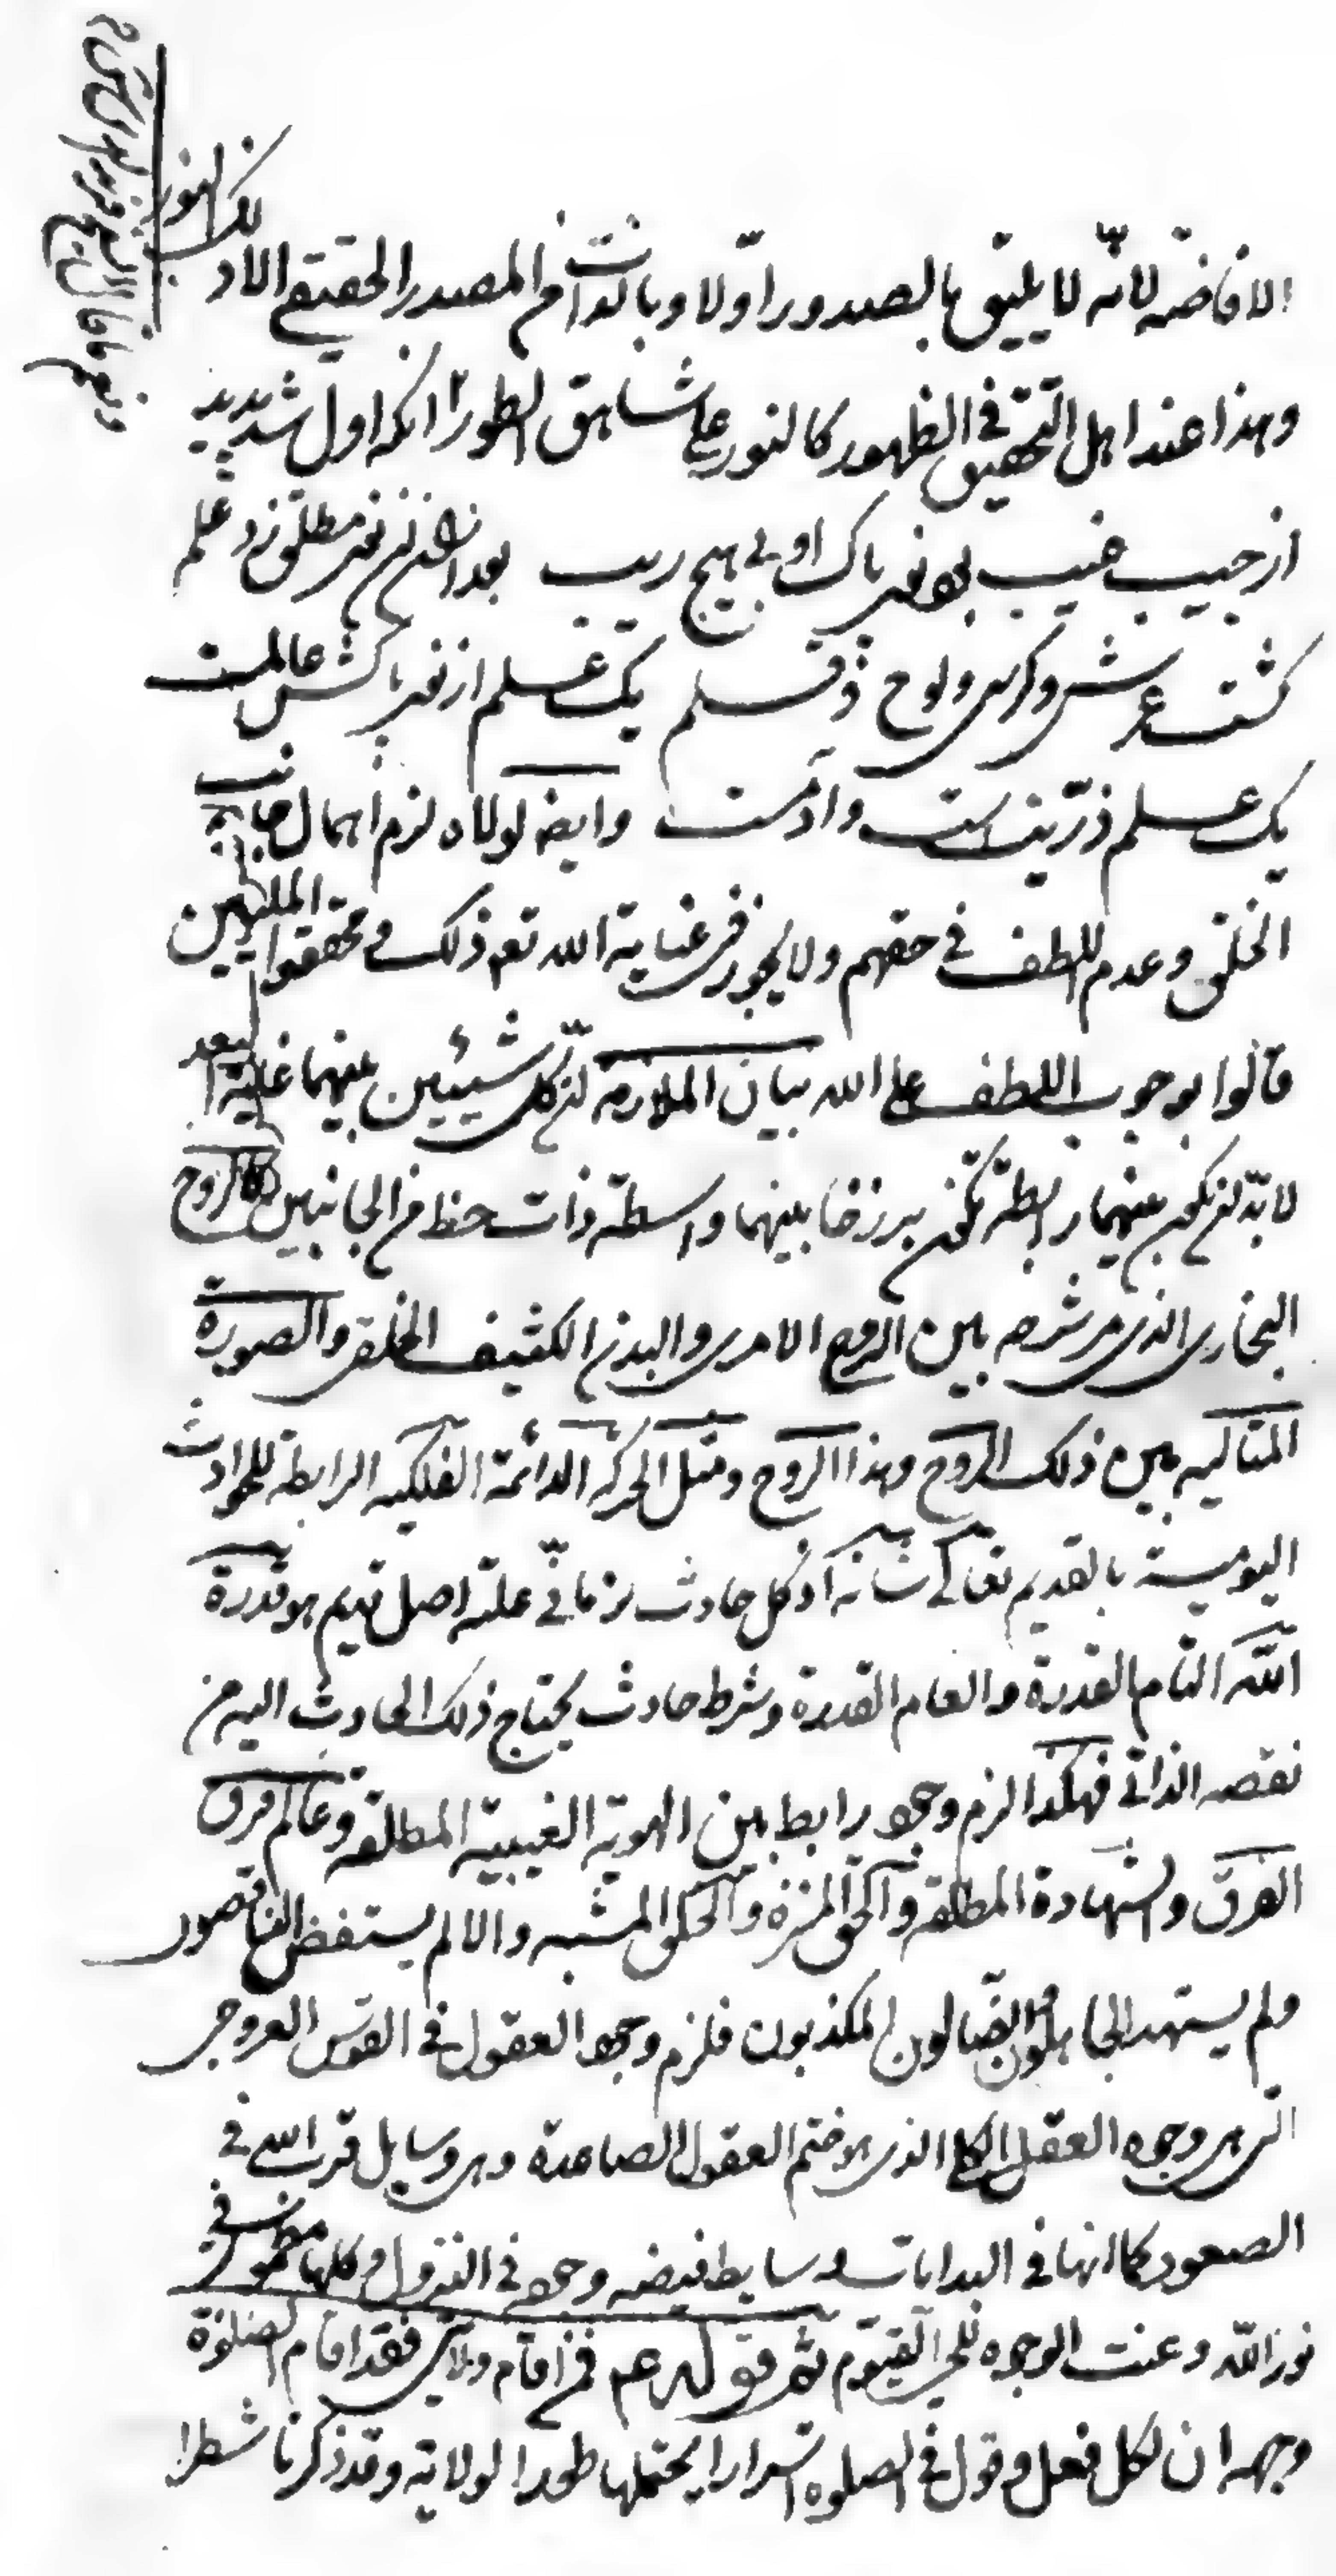 الافاضه لانّه لا يليق بالصدور اوّلا وبالذات من المصدر الحقيقي الا ذلك النور
وهذا عند اهل التحقيق في الظهور كالنور على شاهق الطور انكه اول شد پديد
از جيب غيب بود نور پاك او بى هيچ ريب بعد ازان آن نور مطلق زد علم
گشت عرش وكرسى ولوح و قلم يك علم از نور پاكش عالمست
يك علم ذرّيتست وآدمست وايضا لولاه لزم اهمال جانب
الخلق وعدم اللطف في حقهم ولا يجوز في عناية الله تعم ذلك و محققوا المليين
قالوا بوجوب اللطف على الله بيان الملازمة ان كل شيئين بينهما غاية البعد
لا بدّ ان يكون بينهما رابطة تكون برزخا بينهما واسطة ذات حظ من الجانبين كالروح
البخاري الذى مر شرحه بين الروح الامرى والبدن الكثيف الخلقى والصورة
المثاليه بين ذلك الروح وهذا الروح ومثل الحركه الدائمة الفلكيه الرابطة للحوادث
اليوميه بالقديم تعالى شانه اذ كل حادث زمانى علته اصل قديم هو قدرة
الله التام القدرة والعام القدرة وشرط حادث يحتاج ذلك الحادث اليه من
نقصه الذاتي فهكذا لزم وجود رابط بين الهوية الغيبية المطلقه وعالم فرق
الفرق والشهادة المطلقه والحق المنزه والخلق المشبه والا لم يستفض الناقصون
ولم يستهد الجاهلون الضالون المكذبون فلزم وجود العقول في القوس العروجى
التى هى وجوه العقل الكلى الذى هو ختم العقول الصاعدة وهى وسايل قرب الله في
الصعود كما انها في البدايات وسايط فيضه وجوده في النزول وكلها مطموس في
نور الله وعنت الوجوه للحي القيوم ثم قوله عم فمن اقام ولايتى فقد اقام الصلوة
وجهه ان لكل فعل وقول في الصلوه اسرارا يحتملها طور الولاية وقد ذكرنا شطرا